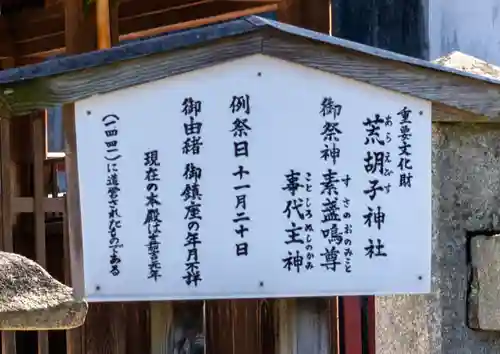 重要文化財
荒胡子神社
あらえびす
御祭神 素盞嗚尊
すさのおのみこと
事代主神
ことしろぬしのかみ
例祭日 十一月二十日
御由緒 御鎮座の年月不詳
現在の本殿は嘉吉元年
(一四四一)に造営されたものである